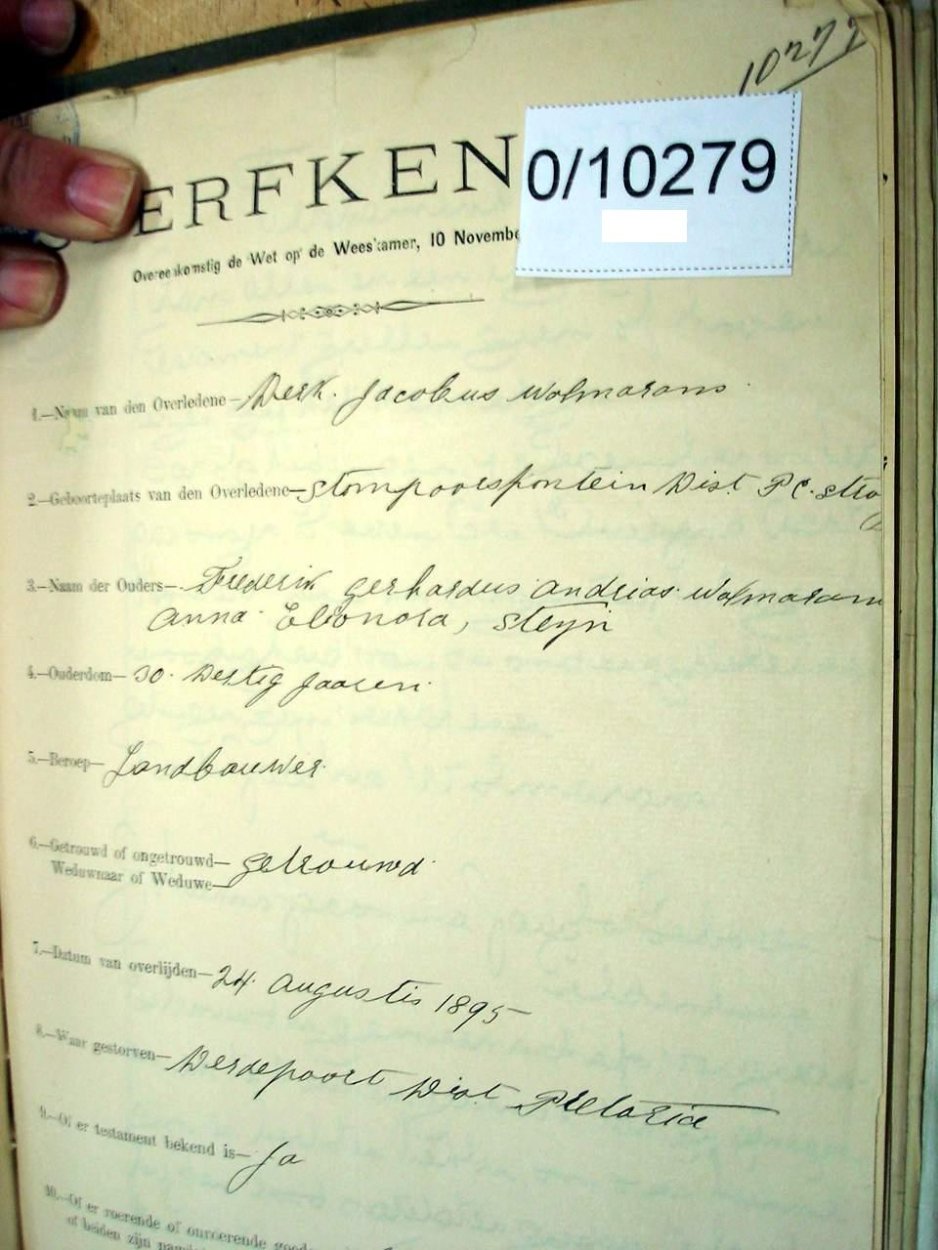 10279
0/10279
ERFKEN
Overeenkomstig de Wet op de Weeskamer, 10 Novembe
1.—Naam van den Overledene— Derk. Jacobus Wolmarans
2.—Geboorteplaats van den Overledene— Stompoorsfontein Dist. P C. stro
3.—Naam der Ouders— Frederik gerhardus andrias Wolmarans
Anna Elionora, Steyn
4.—Ouderdom— 30. Dertig Jaaren.
5.—Beroep— Landbouwer
6.—Getrouwd of ongetrouwd—
Weduwnaar of Weduwe— getrouwd
7.—Datum van overlijden— 24 augustis 1895—
8.—Waar gestorven— Derdepoort Dist. Pretoria
9.—Of er testament bekend is— Ja
10.—Of er roerende of onroerende goede
of beiden zijn